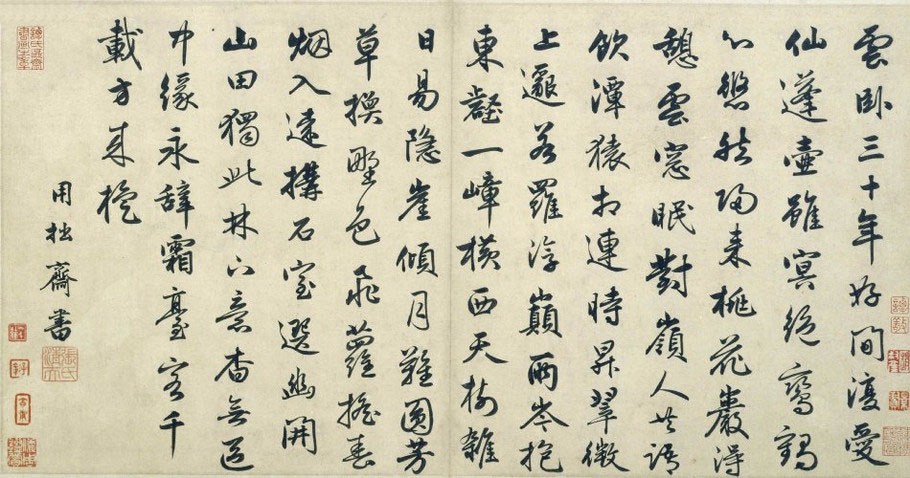 雲臥三十年好閒復愛
仙蓬壺雖冥絕鸞鶴
心悠然歸來桃花巖得
憩雲窓眠對嶺人共語
飲潭猿相連時昇翠微
上邈若羅浮巔兩岑抱
東壑一嶂橫西天樹雜
日易隱崖傾月難圓芳
草換野色飛蘿搖春
烟入遠構石室選幽開
山田獨此林下意杳無區
中緣永辭霜臺客千
載方來旋
用拙齋書